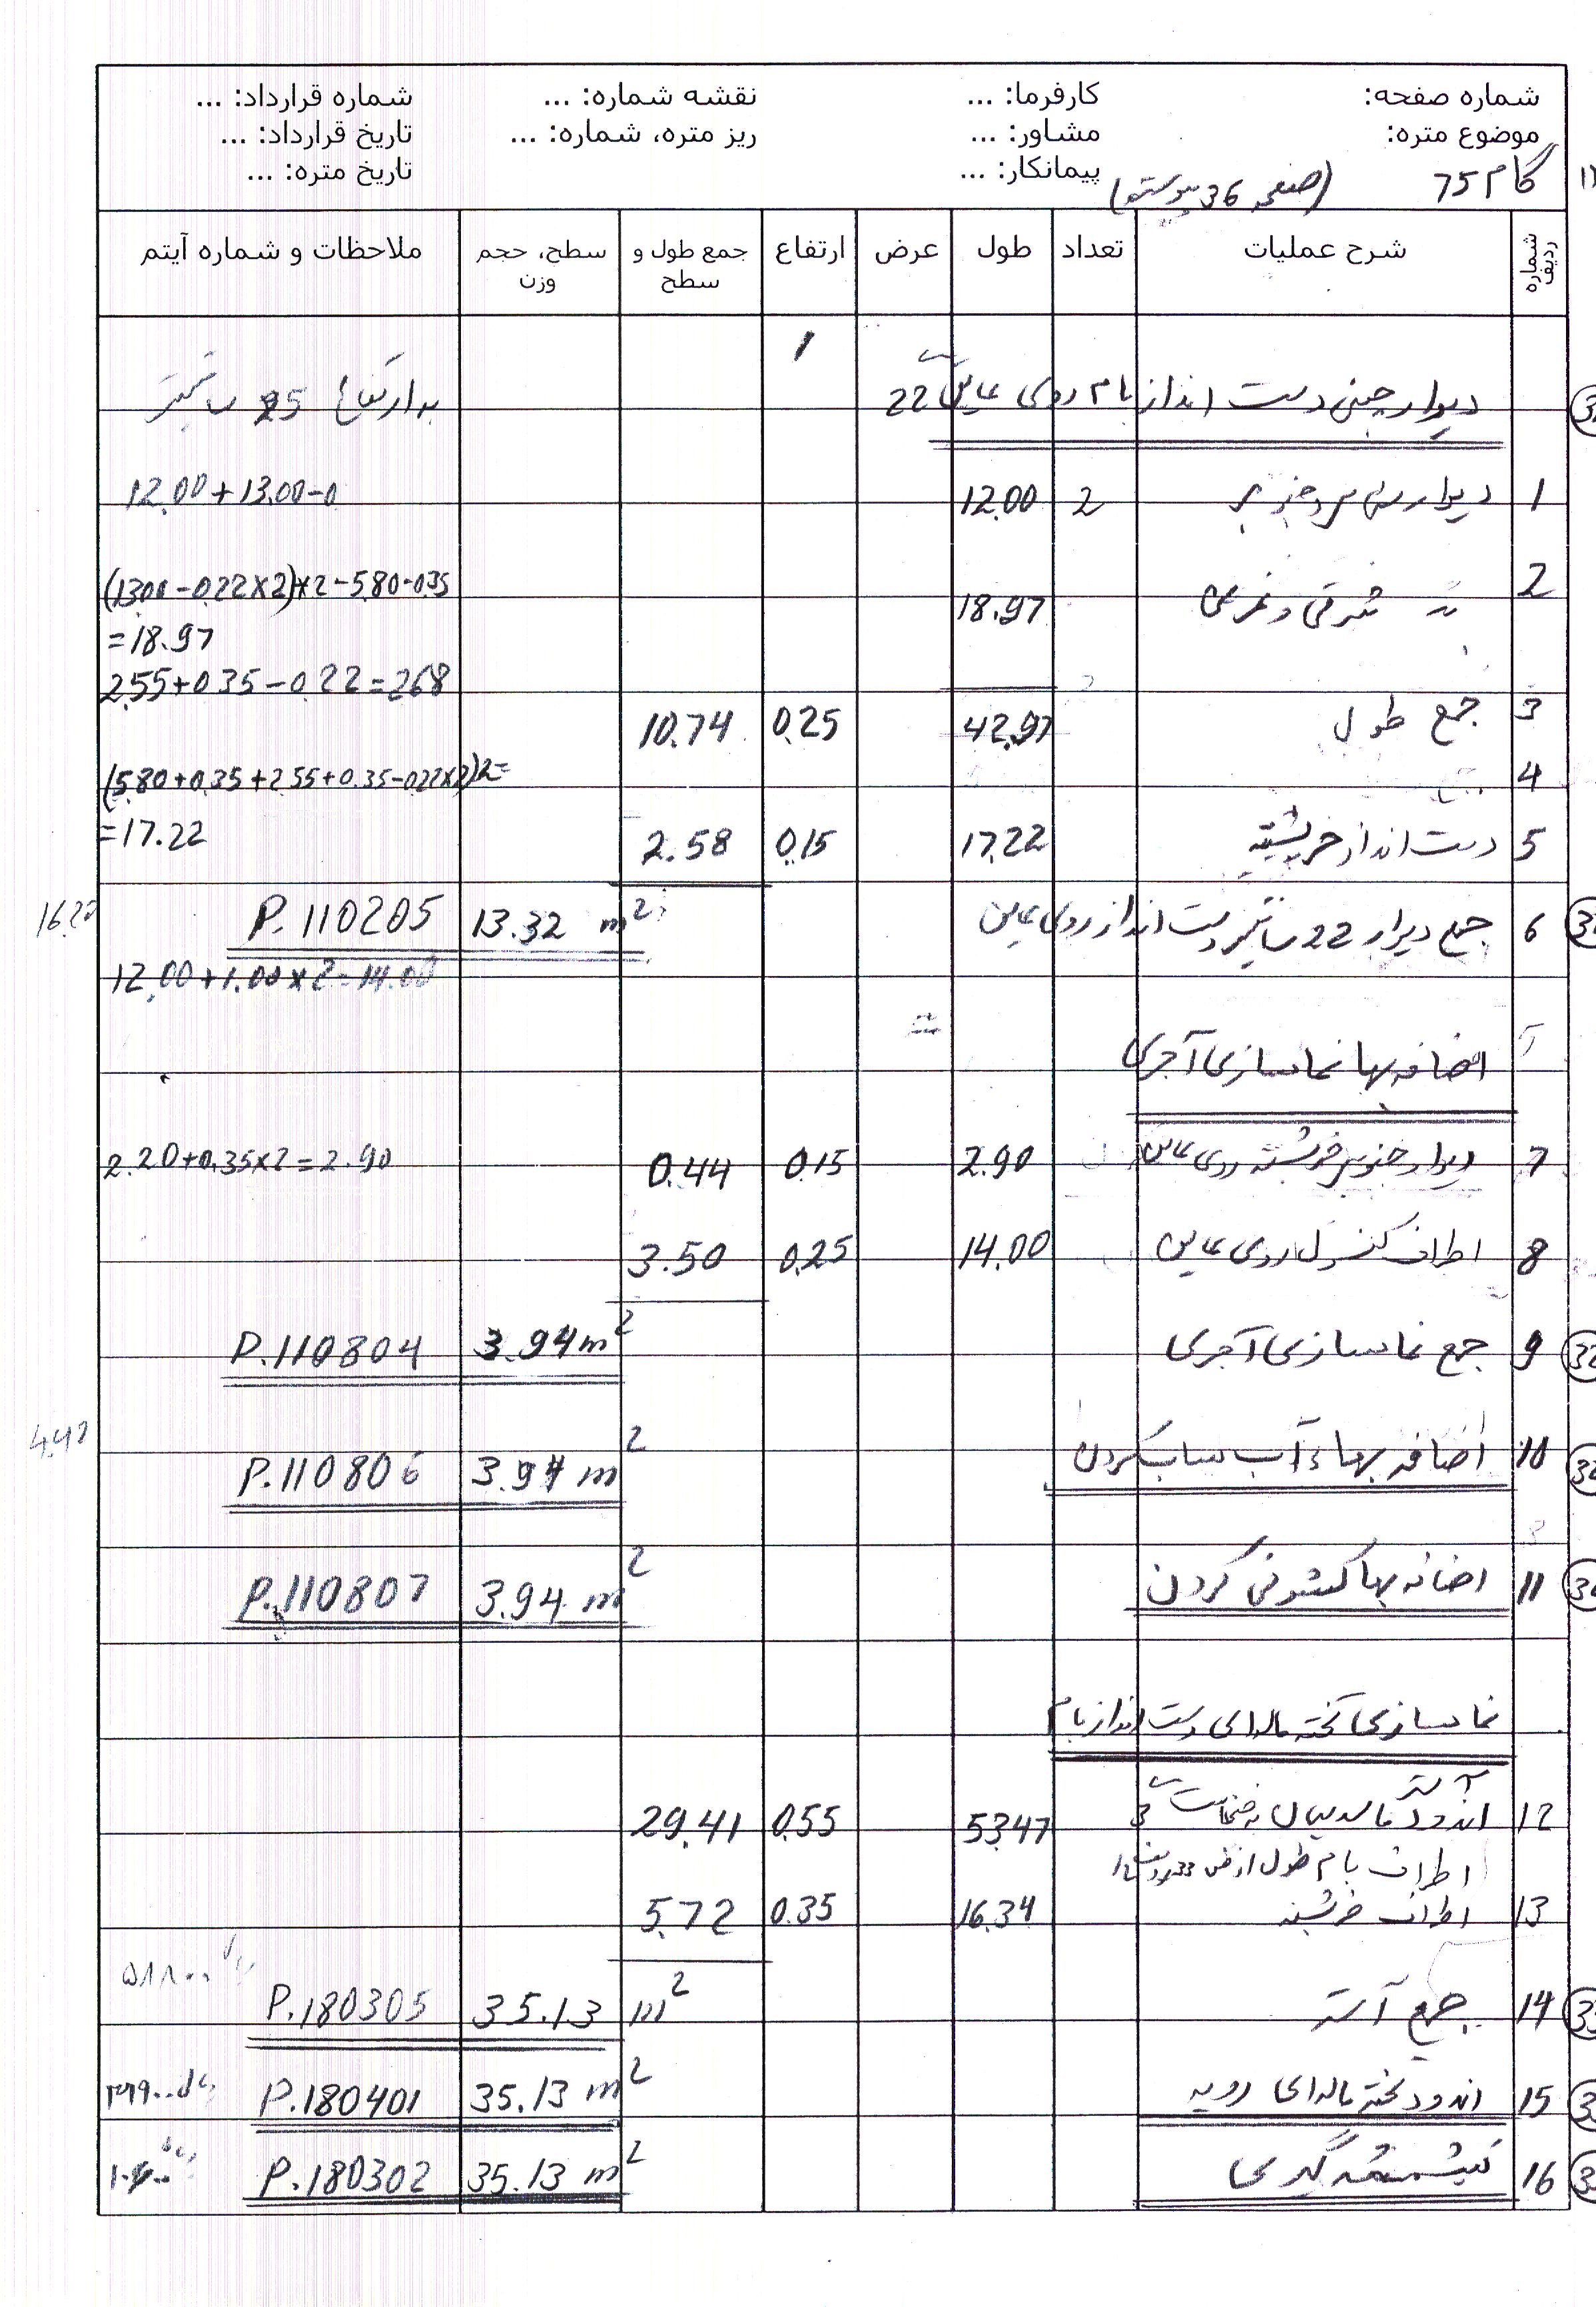 شماره صفحه:
موضوع متره:
گام 75
(صفحه 36 پیوست)
کارفرما: ...
مشاور: ...
پیمانکار: ...
نقشه شماره: ...
ریز متره، شماره: ...
شماره قرارداد: ...
تاریخ قرارداد: ...
تاریخ متره: ...
شماره ردیف | شرح عملیات | تعداد | طول | عرض | ارتفاع | جمع طول و سطح | سطح، حجم وزن | ملاحظات و شماره آیتم
دیوار چینی دست انداز بام روی عایق 22 به ارتفاع 25 سانتیمتر
1 دیوار شمالی و جنوبی 2 12.00 12.00+13.00-0
2 شرقی و غربی 18.97 (13.00-0.22×2)×2-5.80-0.35
=18.97
2.55+0.35-0.22=2.68
3 جمع طول 42.97 0.25 10.74
4 (5.80+0.35+2.55+0.35-0.22×2)2=
=17.22
5 دست انداز خرپشته 17.22 0.15 2.58
6 جمع دیوار 22 سانتیمتر دست انداز روی عایق 13.32 m2 P.110205
12.00+1.00×2=14.00
اضافه بها نماسازی آجری
7 دیوار جنوبی خرپشته روی عایق 2.90 0.15 0.44 2.20+0.35×2=2.90
8 اطراف کنسول روی عایق 14.00 0.25 3.50
9 جمع نماسازی آجری 3.94 m2 P.110804
10 اضافه بهاء آب ساب کردن 3.94 m2 P.110806
11 اضافه بها کشویی کردن 3.94 m2 P.110807
نماسازی تخته ماله‌ای دست انداز بام
آستر
12 اندود ماسه سیمان به ضخامت 3 53.47 0.55 29.41
اطراف بام طول از
13 اطراف خرپشته 16.34 0.35 5.72
14 جمع آستر 35.13 m2 P.180305
15 اندود تخته ماله‌ای رویه 35.13 m2 P.180401
16 شیشه گیری 35.13 m2 P.180302